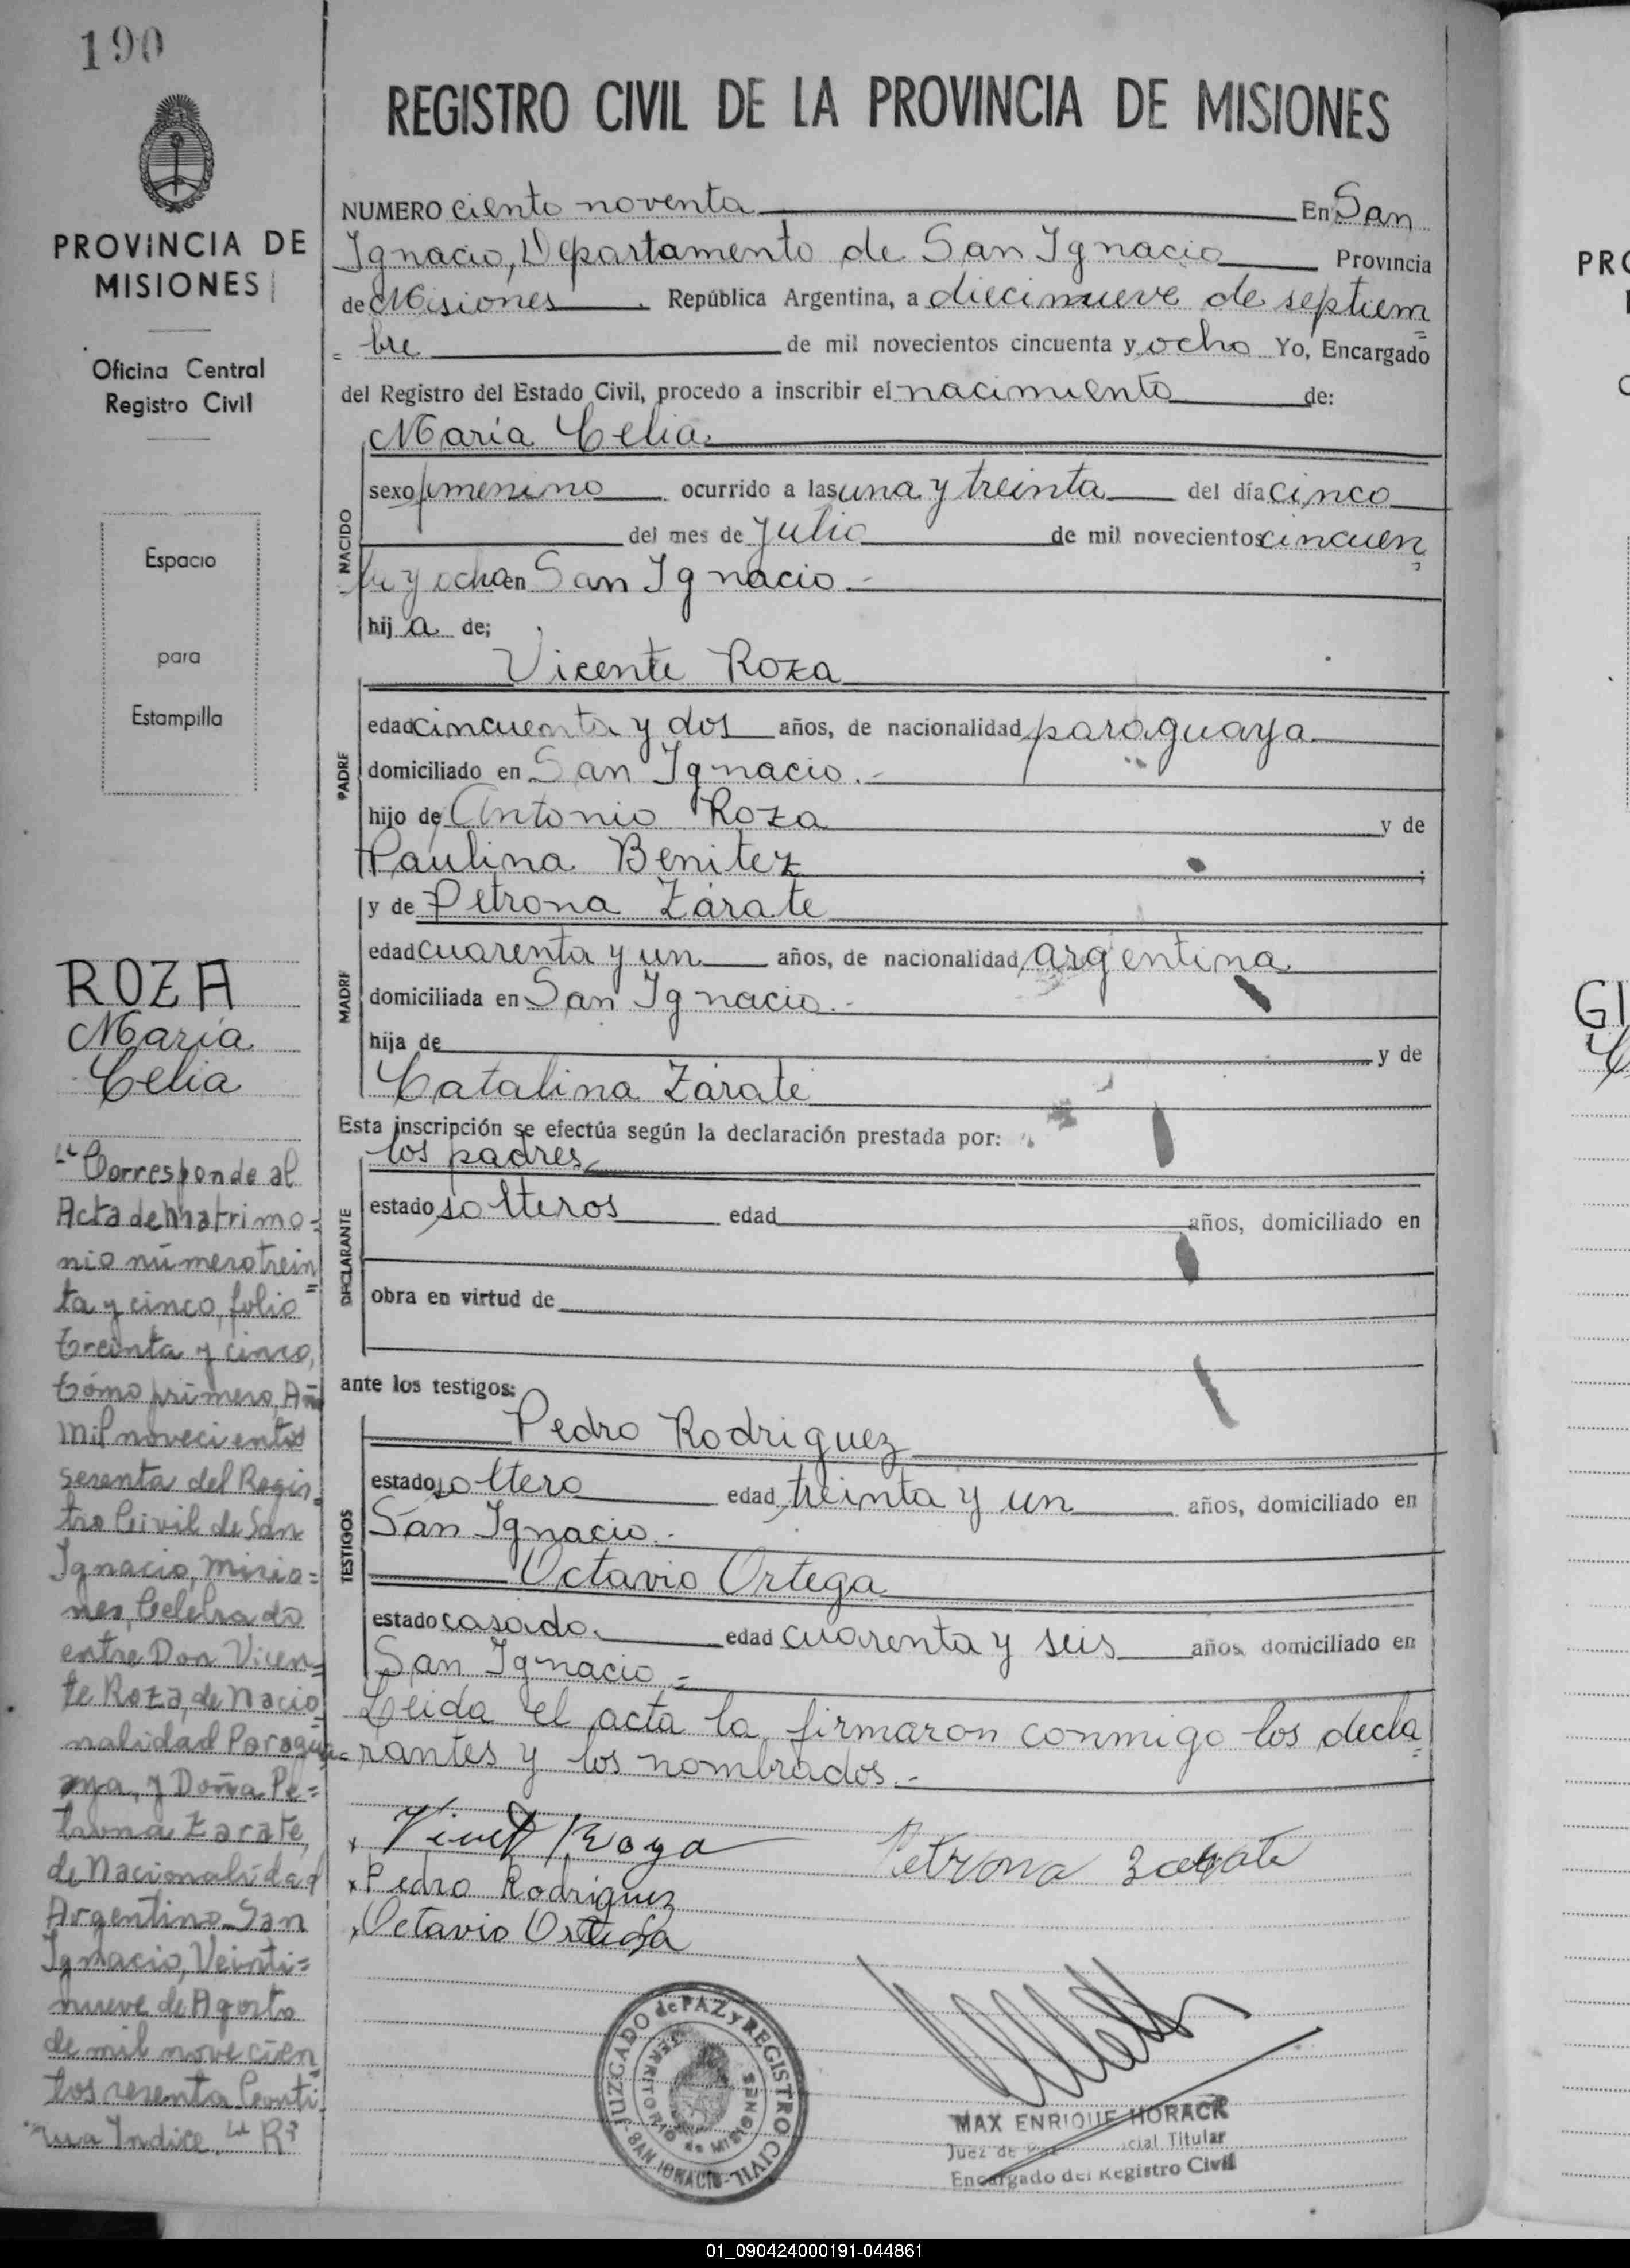 190
PROVINCIA DE
MISIONES
Oficina Central
Registro Civil
Espacio
para
Estampilla
ROZA
María
Celia
"Corresponde al
Acta de Matrimo=
nio número trein=
ta y cinco, folio
treinta y cinco,
tómo primero, Año
Mil novecientos
sesenta del Regis=
tro Civil de San
Ignacio, Misio=
nes, Celebrado
entre Don Vicen=
te Roza, de Nacio=
nalidad Paragua=
ya, y Doña Pe=
trona Zarate,
de Nacionalidad
Argentino San
Ignacio, Veinti=
nueve de Agosto
de mil novecien
tos sesenta Conti
nua Indice."
REGISTRO CIVIL DE LA PROVINCIA DE MISIONES
NUMERO ciento noventa En San
Ignacio, Departamento de San Ignacio Provincia
de Misiones República Argentina, a diecinueve de septiem
= bre de mil novecientos cincuenta y ocho Yo, Encargado
del Registro del Estado Civil, procedo a inscribir el nacimiento de:
María Celia
NACIDO
sexo femenino ocurrido a las una y treinta del día cinco
del mes de Julio de mil novecientos cincuen
ta y ocho en San Ignacio.-
hij a de;
Vicente Roza
PADRE
edad cincuenta y dos años, de nacionalidad paraguaya
domiciliado en San Ignacio.-
hijo de Antonio Roza y de
Paulina Benitez
y de Petrona Zárate
MADRE
edad cuarenta y un años, de nacionalidad argentina
domiciliada en San Ignacio.-
hija de y de
Catalina Zárate
Esta inscripción se efectúa según la declaración prestada por:
los padres
DECLARANTE
estado solteros edad años, domiciliado en
obra en virtud de
ante los testigos:
Pedro Rodriguez
TESTIGOS
estado soltero edad treinta y un años, domiciliado en
San Ignacio.-
Octavio Ortega
estado casado edad cuarenta y seis años, domiciliado en
San Ignacio.=
Leida el acta la firmaron conmigo los decla
=rantes y los nombrados.-
Roza Petrona Zarate
Pedro Rodriguez
Octavio Ortega
JUZGADO de PAZ y REGISTRO CIVIL - SAN IGNACIO -
TERRITORIO de MISIONES
MAX ENRIQUE HORACK
Juez de Titular
Encargado del Registro Civil
PRO
GI
01_090424000191-044861